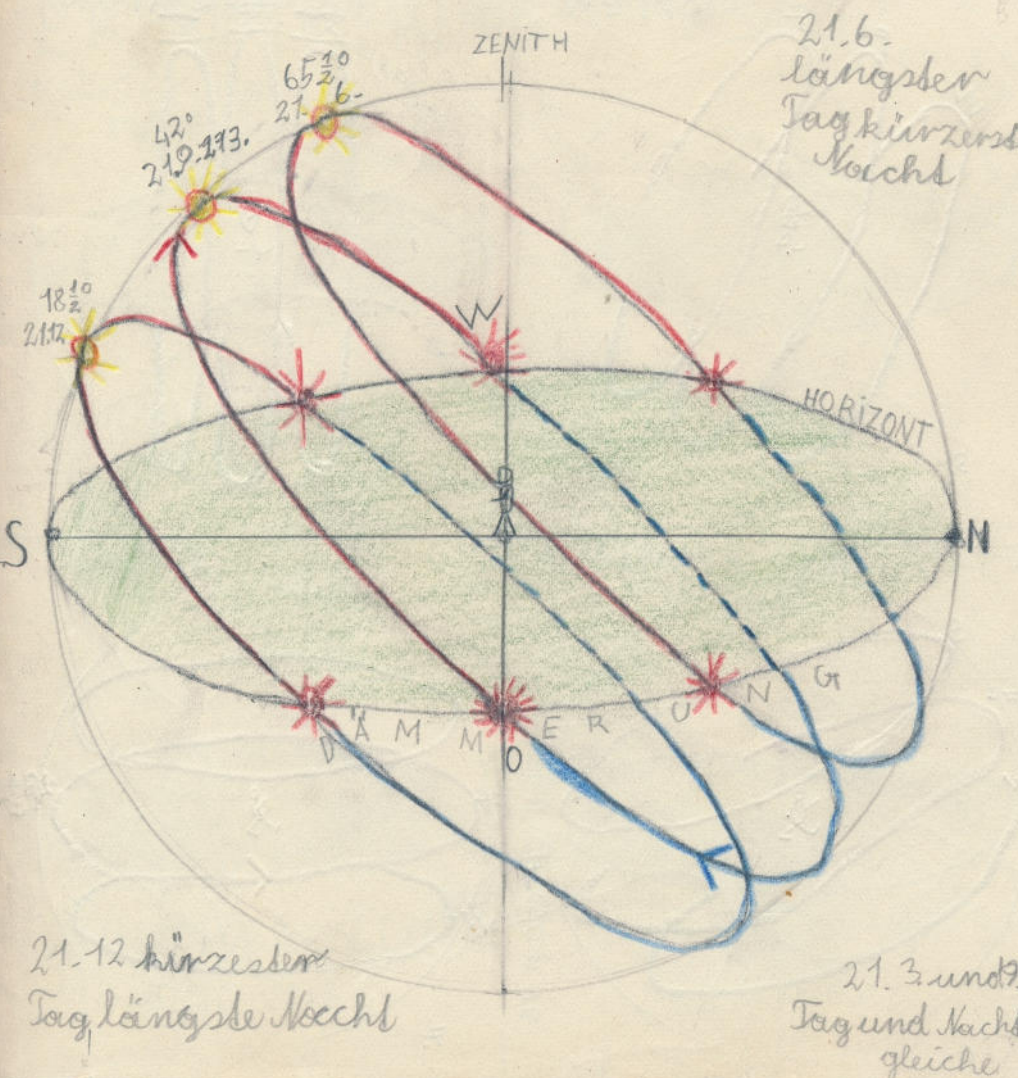 ZENITH
21.6.
längster
Tag kürzerst
Nacht
65 ½°
21. 6.
42°
21.9.-21.3.
18 ½°
21.12
W
HORIZONT
S
N
DÄMMERUNG
O
21.12 kürzester
Tag längste Nacht
21. 3. und
Tag und Nacht
gleiche